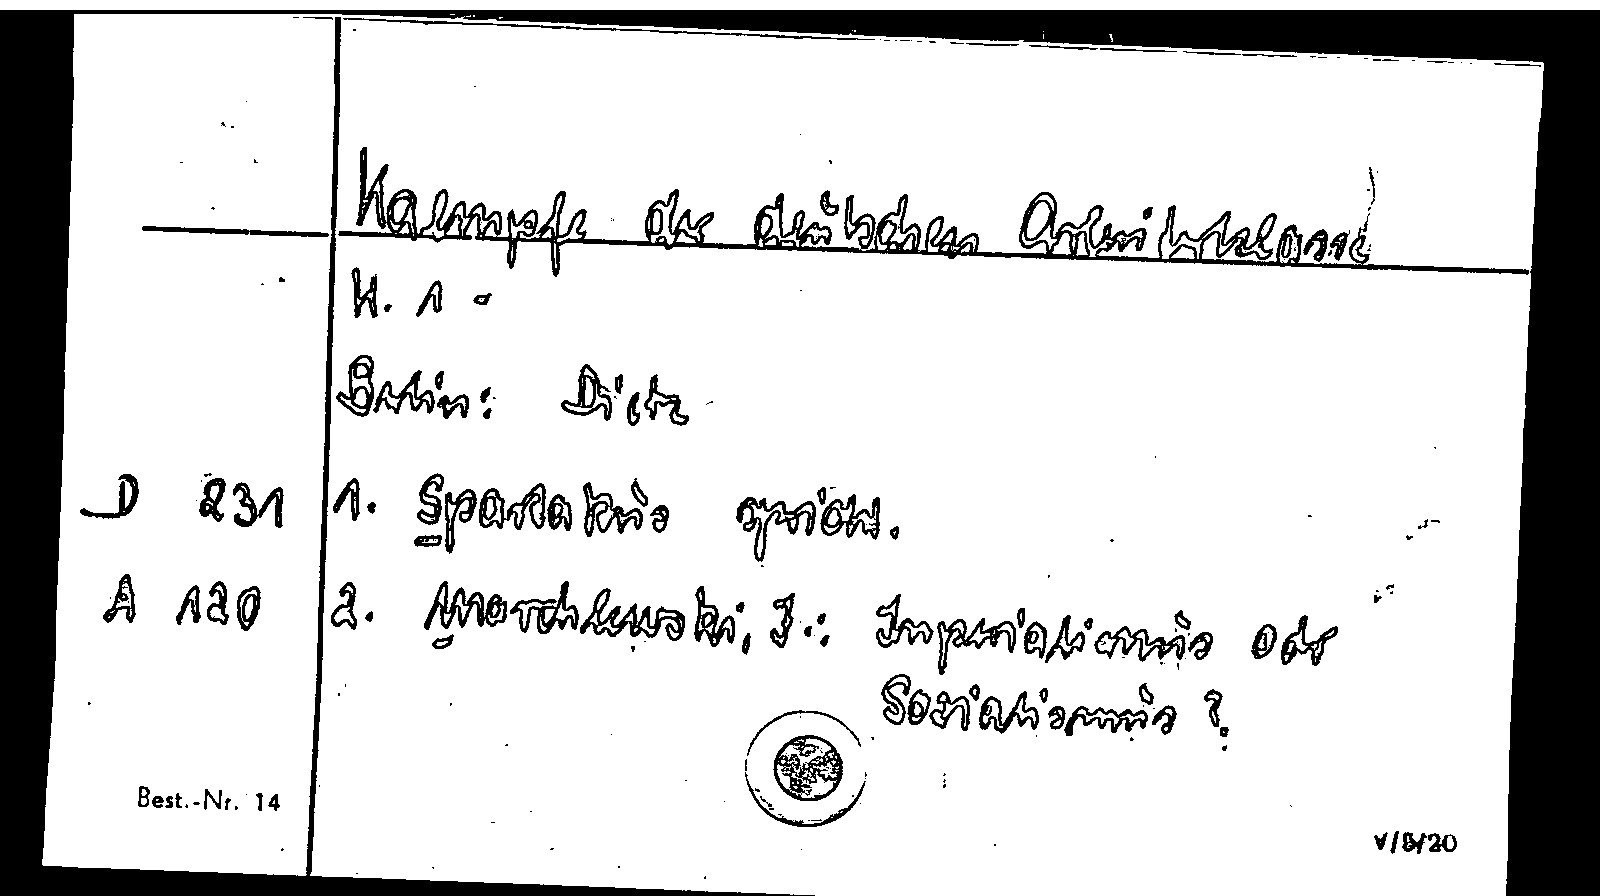 Kaempfe der deutschen Arbeiterklasse
H. 1 -
Berlin: Dietz
D 231 1. Spartakus griech.
A 120 2. Marchlewski, J.: Imperialismus oder
Sozialismus?
Best.-Nr. 14
V/8/20